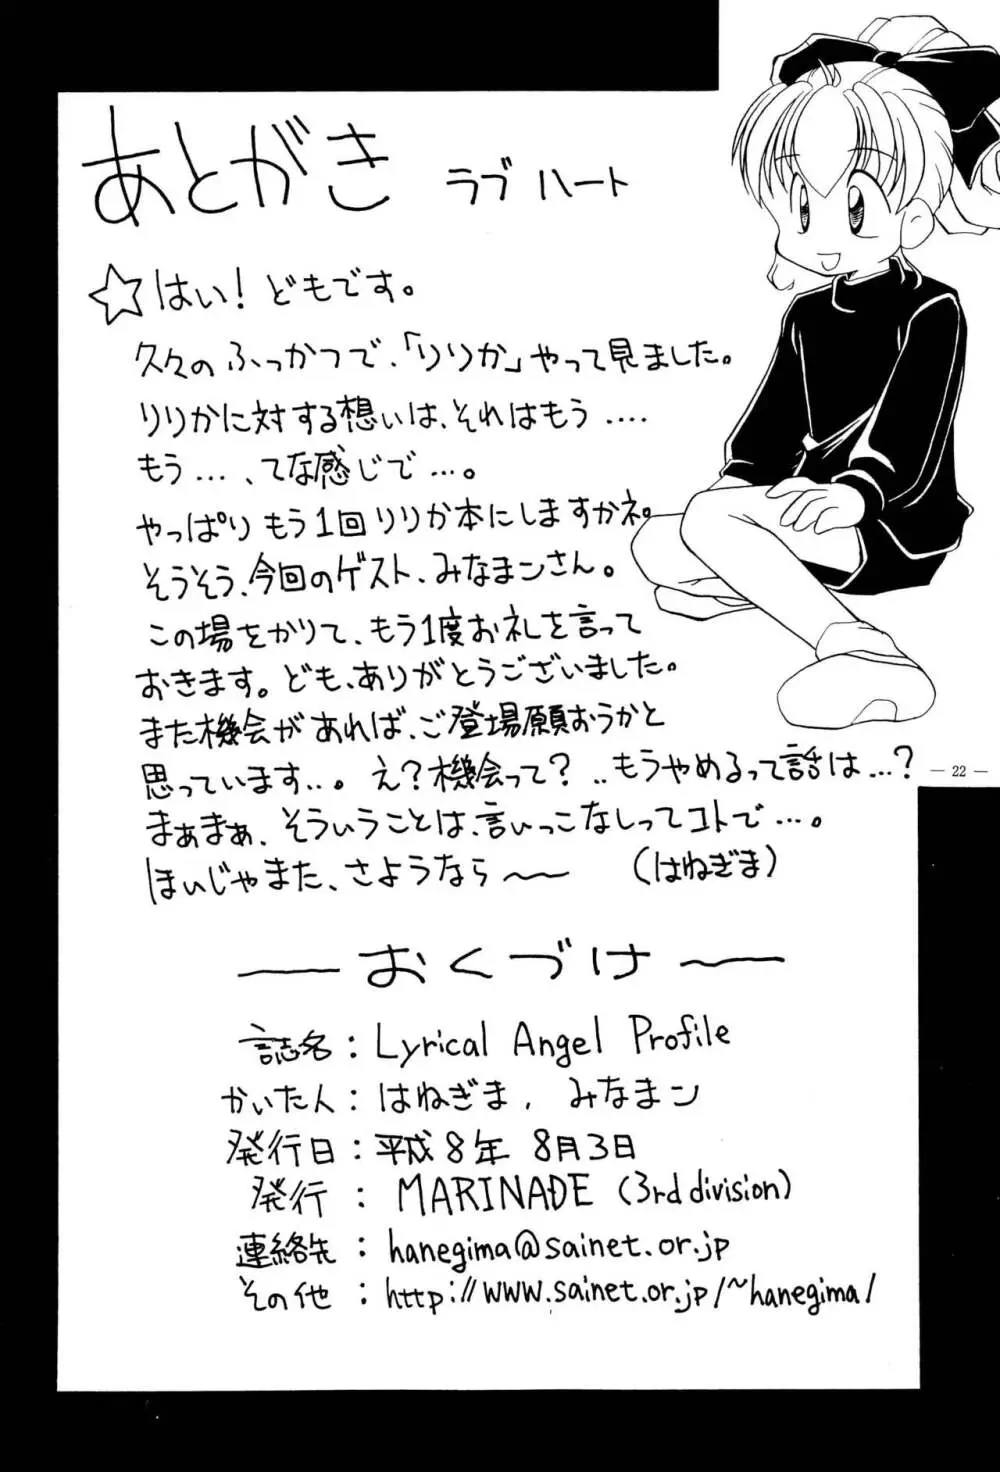 あとがき ラブ ハート
☆はい！どもです。
久々のふっかつで、「りりか」やって見ました。
りりかに対する想いは、それはもう‥‥
もう…、てな感じで…。
やっぱりもう1回りりか本にしますかネ。
そうそう、今回のゲスト、みなまンさん。
この場をかりて、もう1度お礼を言って
おきます。ども、ありがとうございました。
また機会があれば、ご登場願おうかと
思っています…。え？機会って？‥もうやめるって話は…？
まぁまぁ、そういうことは、言いっこなしってコトで…。
ほいじゃまた、さようなら〜〜 （はねぎま）
— 22 —
〜おくづけ〜
誌名：Lyrical Angel Profile
かいた人：はねぎま、みなまン
発行日：平成8年 8月3日
発行：MARINADE (3rd division)
連絡先：hanegima@sainet.or.jp
その他：http://www.sainet.or.jp/~hanegima/